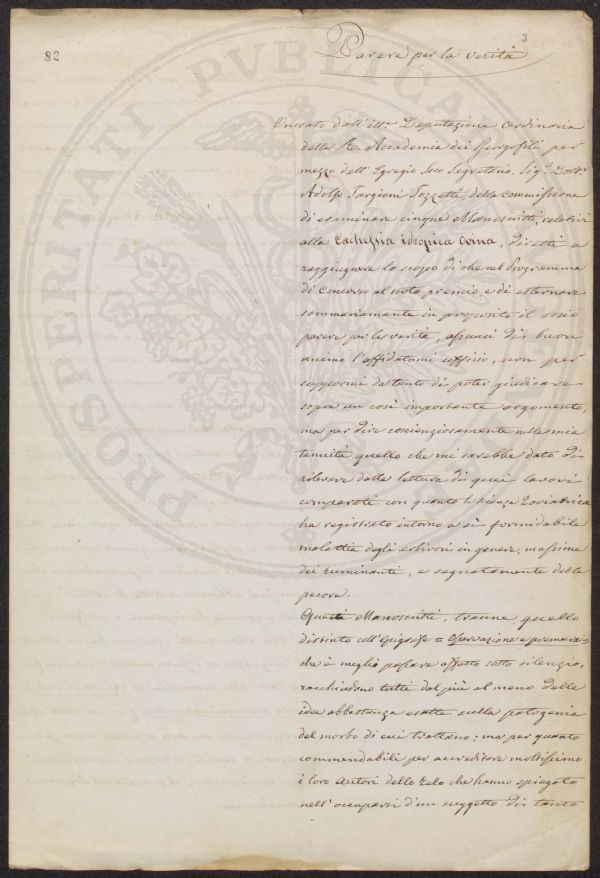 3
82
Parere per la verità
Onorato dall' ill.ma Deputazione Ordinaria
della R. Accademia dei Georgofili per
mezzo dell' Egregio Suo Segretario Sig. Dott.
Adolfo Targioni Tozzetti, della commissione
di esaminare cinque Manoscritti, relativi
alla Cachessia idropica Ovina, diretti a
raggiugnere lo scopo di che nel Programma
di Concorso al noto premio, e di esternare
sommariamente in proposito il mio
parere per la verità, assunsi di buon
animo l'affidatomi ufficio, non per
suppormi da tanto di poter giudicare
sopra un così importante argomento,
ma per dire coscienziosamente nella mia
tenuità quello che mi sarebbe dato di
rilevare dalla lettura di quei lavori
comparati con quanto la Scienza Zoojatrica
ha registrato intorno a sì formidabile
malattia degli erbivori in genere, massime
dei ruminanti, e segnatamente delle
pecore.
Questi Manoscritti, tranne quello
distinto coll' Epigrafe = Osservazione e premura =
che è meglio passare affatto sotto silenzio,
racchiudono tutti dal più al meno delle
idee abbastanza esatte sulla patogenia
del morbo di cui trattano; ma per quanto
commendabili per accreditare moltissimo
i loro Autori dello zelo che hanno spiegato
nell' occuparsi d'un soggetto di tanto
PROSPERITATI PVBLICAE